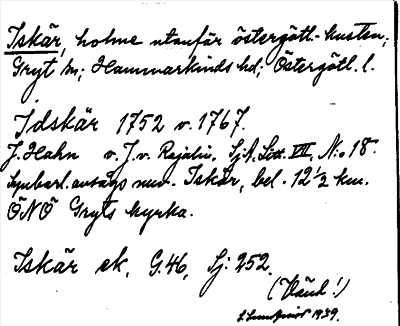 Iskär, holme utanför östergötl.-kusten;
Gryt sn; Hammarkinds hd; Östergötl. l.
Idskär 1752 v. 1767.
J. Hahn o. J. v. Rajalin, Sj.A. Litt. VII, N:o 18.
Synbarl. avsågs nuv. Iskär, bel. 12 1/2 km.
ÖNÖ Gryts kyrka.
Iskär ek. G.46, Sj: 252.
(Vänd!)
1939.